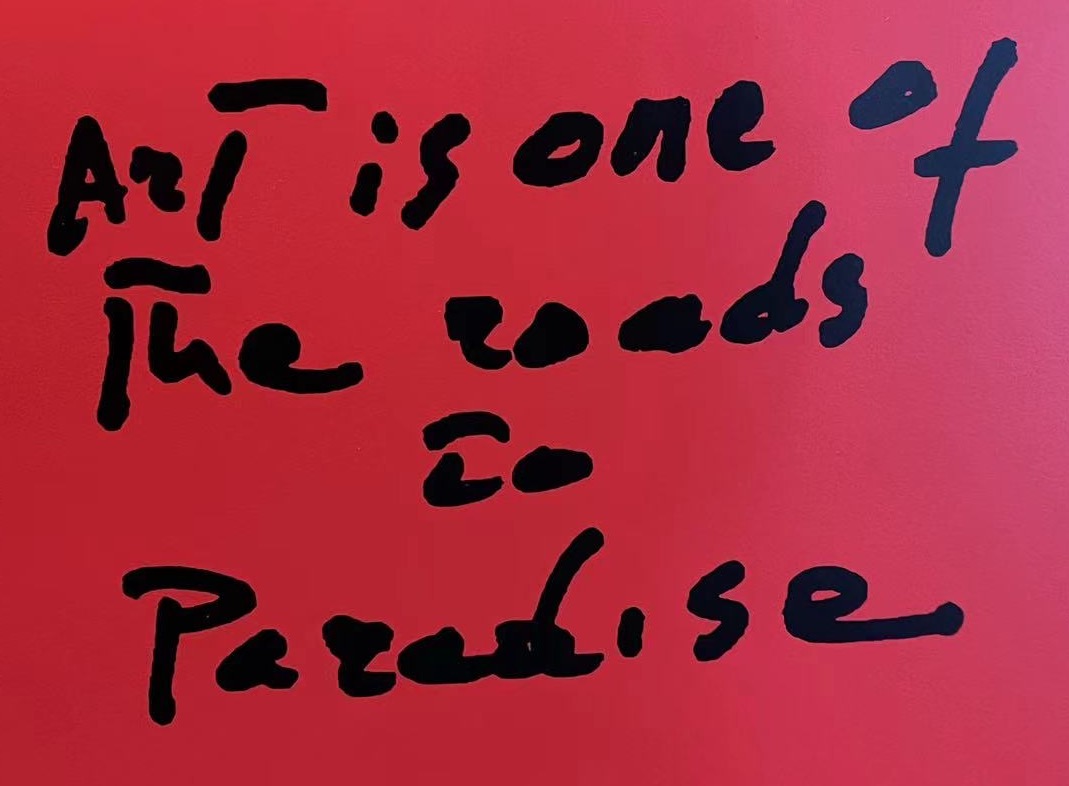 Art is one of
The roads
to
Paradise